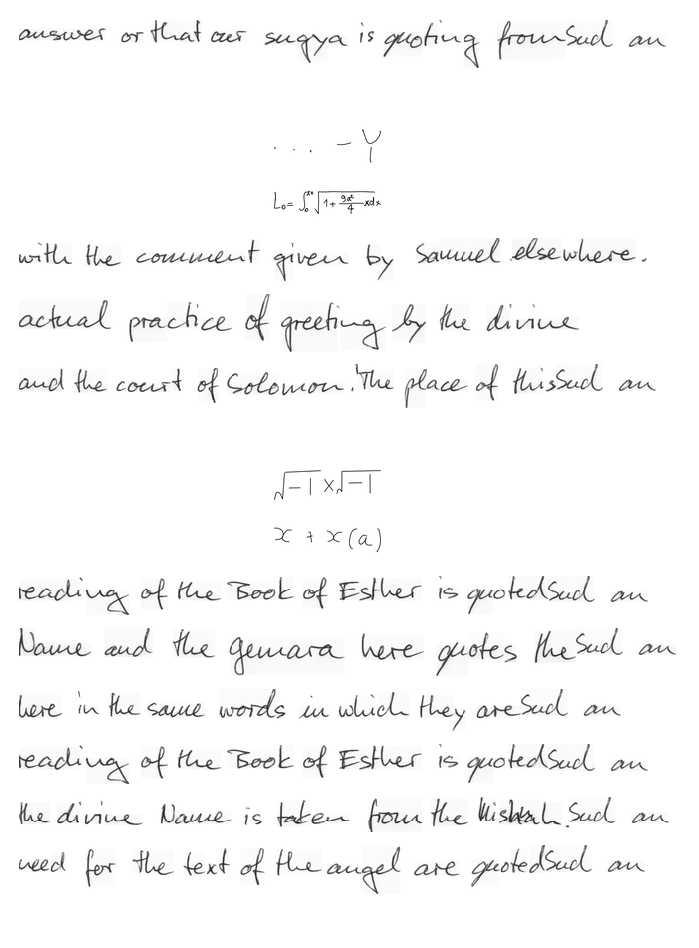 answer or that our sugya is quoting from Sud an
. . . - Y
L₀ = ∫₀^{x₀} √(1 + 9a²/4 x dx
with the comment given by Samuel elsewhere.
actual practice of greeting by the divine
and the court of Solomon. The place of this Sud an
√-1 × √-1
x + x(a)
reading of the Book of Esther is quoted Sud an
Name and the gemara here quotes the Sud an
here in the same words in which they are Sud an
reading of the Book of Esther is quoted Sud an
the divine Name is taken from the Mishnah. Sud an
need for the text of the angel are quoted Sud an